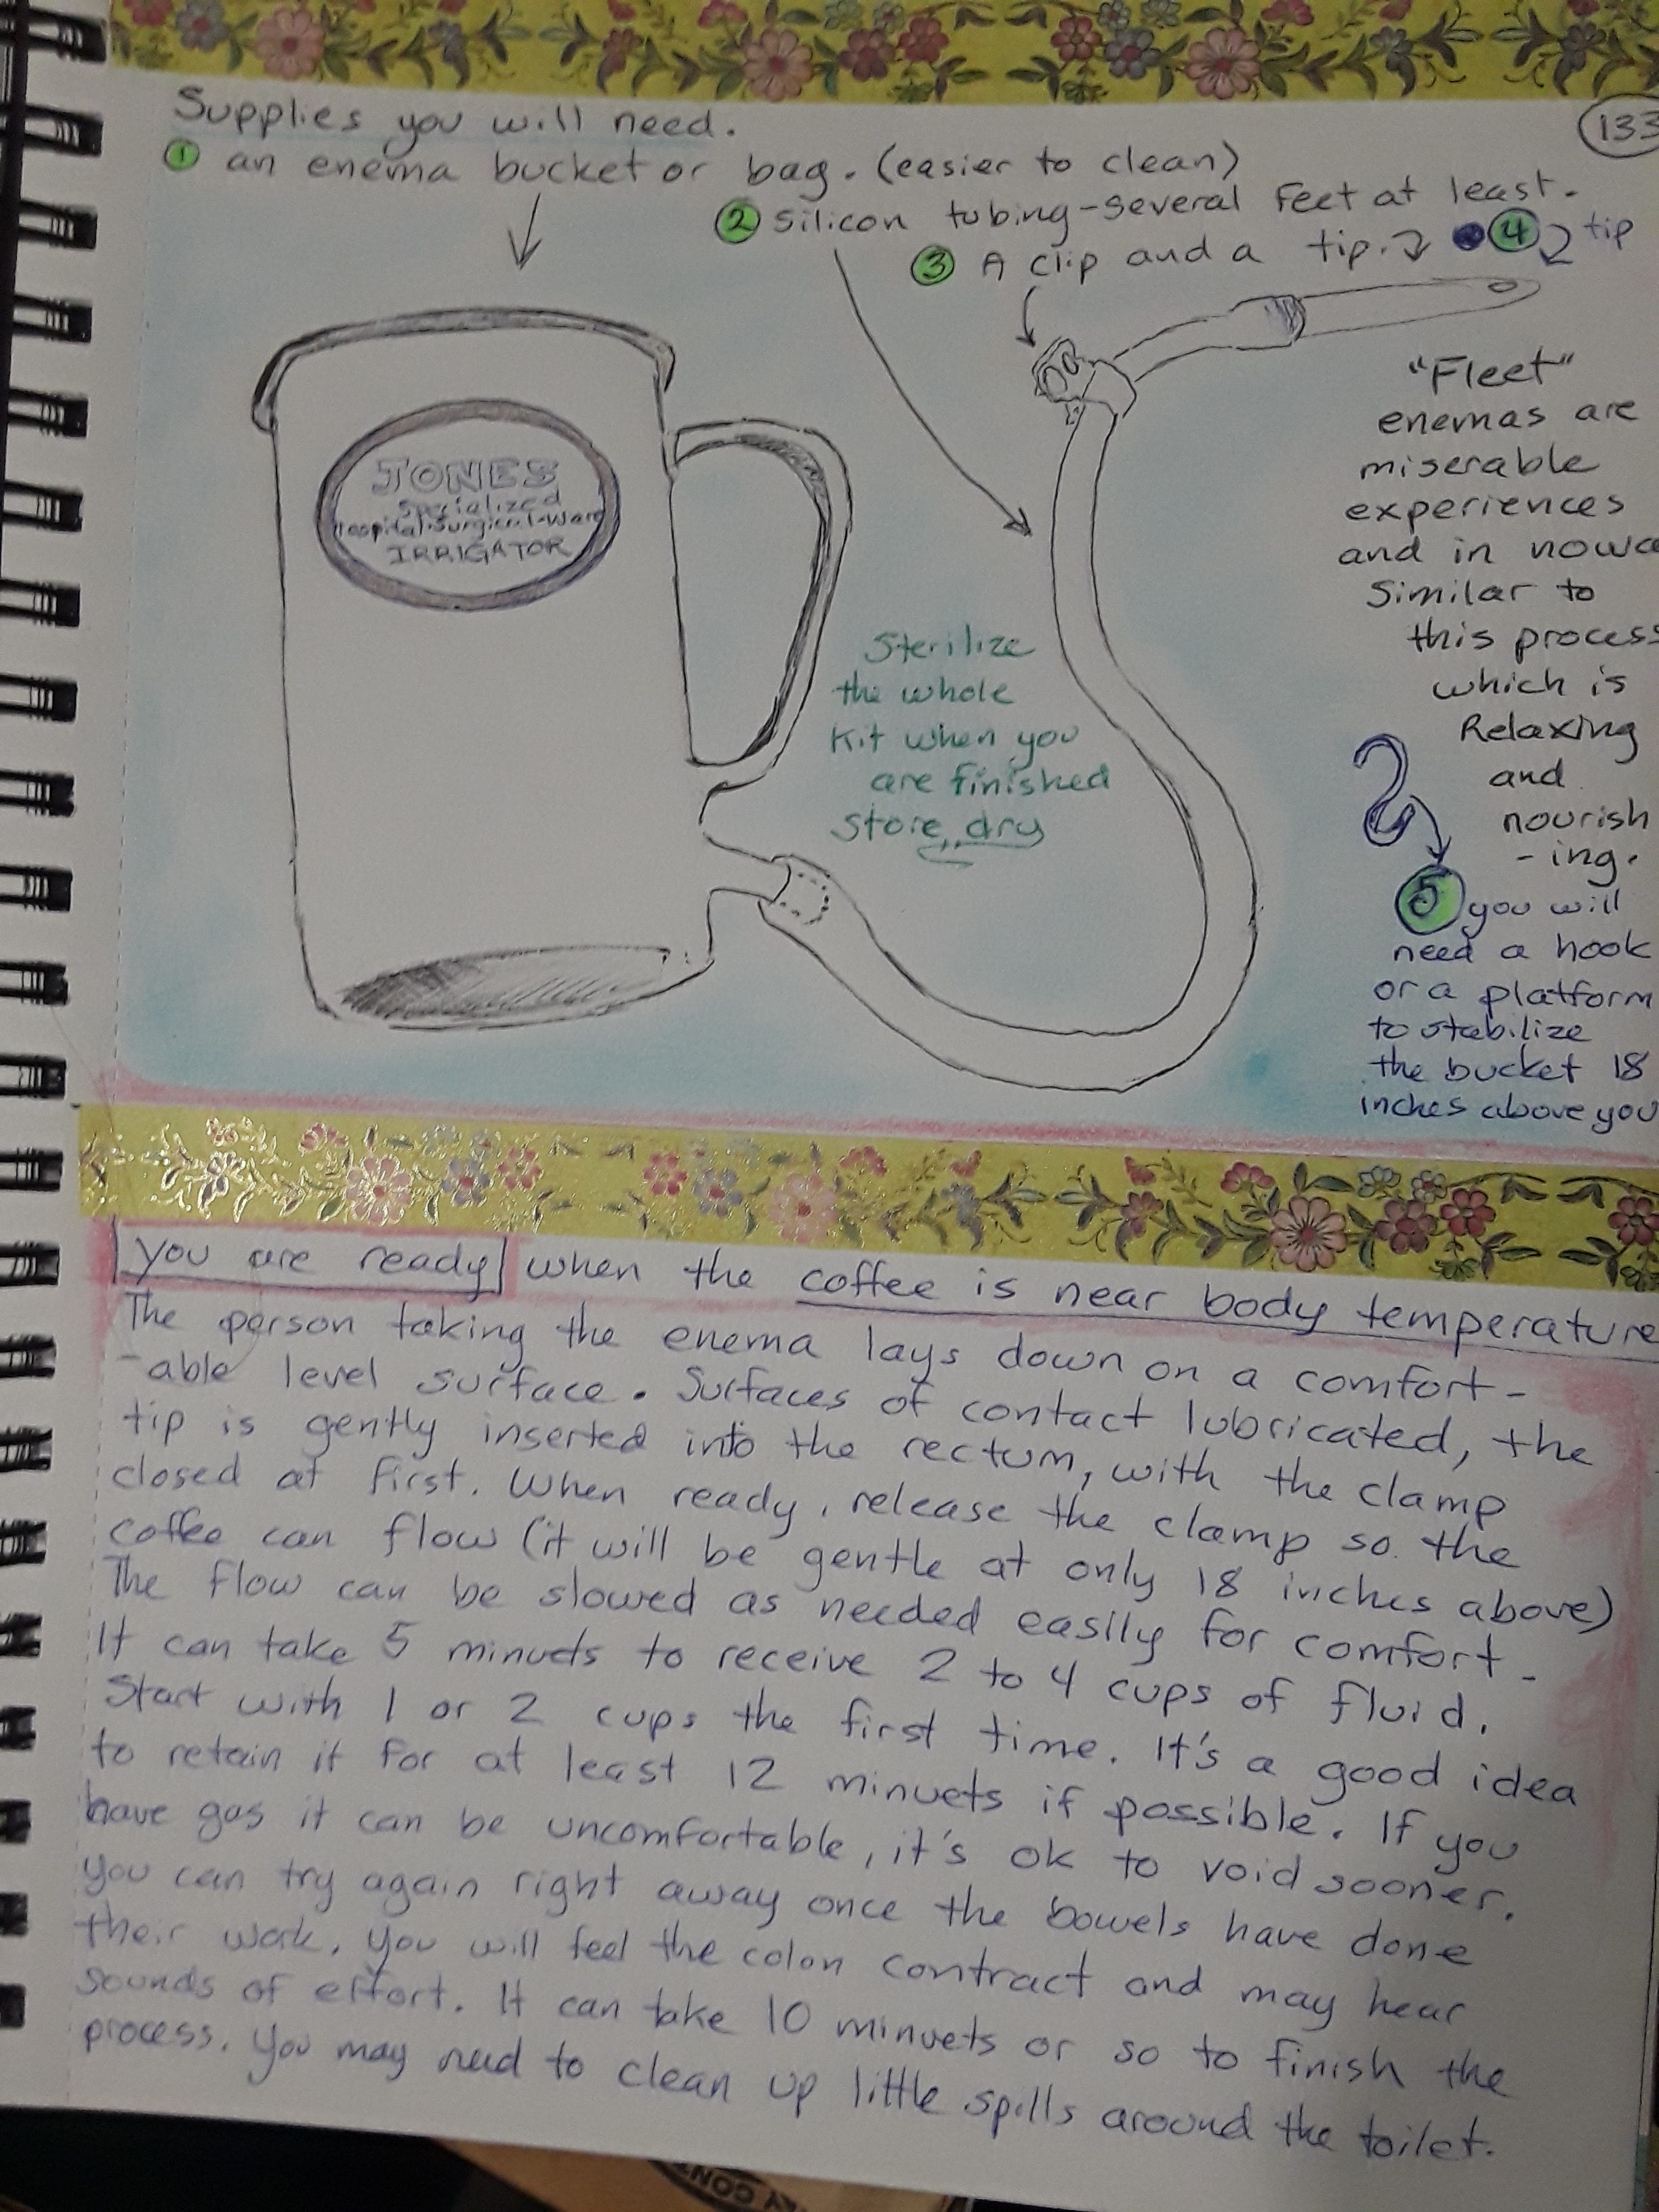 133
Supplies you will need.
① an enema bucket or bag. (easier to clean)
② Silicon tubing-several feet at least.
③ A clip and a tip. ④ tip
JONES
Specialized
Hospital-Surgical-Ware
IRRIGATOR
"Fleet"
enemas are
miserable
experiences
and in nowa
Similar to
this process
which is
Relaxing
and
nourish
-ing.
Sterilize
the whole
Kit when you
are finished
Store dry
⑤ you will
need a hook
or a platform
to stabilize
the bucket 18
inches above you
you are ready when the coffee is near body temperature
The person taking the enema lays down on a comfort-
-able level surface. Surfaces of contact lubricated, the
tip is gently inserted into the rectum, with the clamp
closed at first. When ready, release the clamp so the
coffee can flow (it will be gentle at only 18 inches above)
The flow can be slowed as needed easily for comfort-
It can take 5 minuets to receive 2 to 4 cups of fluid.
Start with 1 or 2 cups the first time. It's a good idea
to retain it for at least 12 minuets if possible. If you
have gas it can be uncomfortable, it's ok to void sooner.
you can try again right away once the bowels have done
their work. You will feel the colon contract and may hear
sounds of effort. It can take 10 minuets or so to finish the
process. You may need to clean up little spills around the toilet.